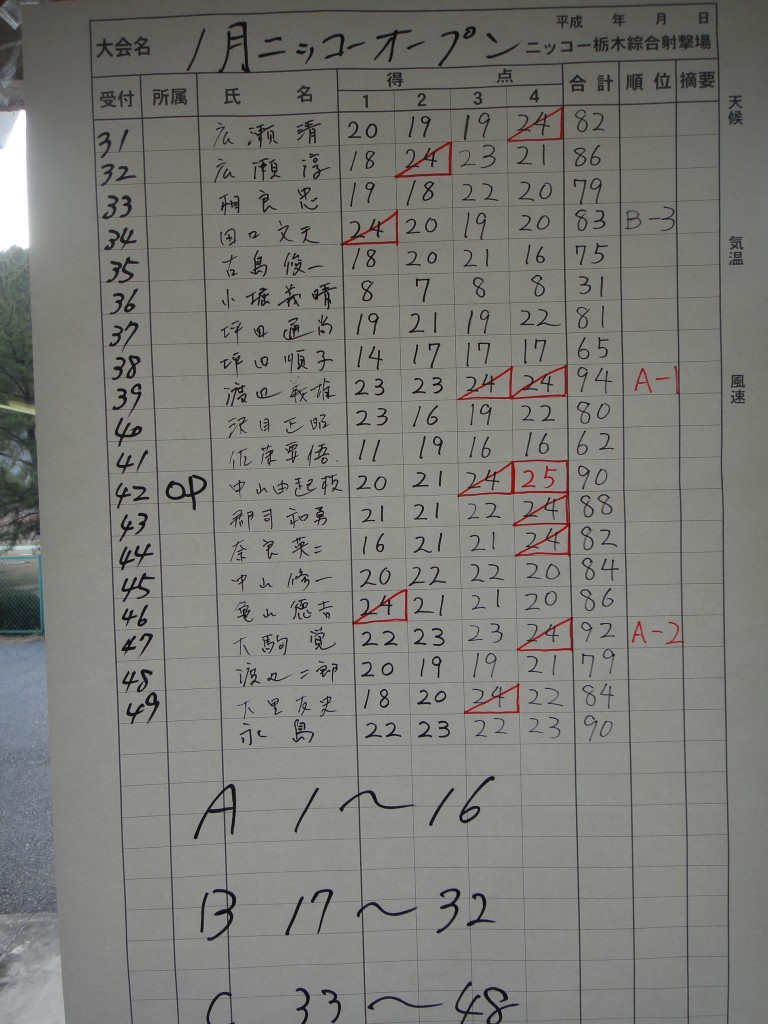 平成 年 月 日
大会名 1月ニッコーオープン ニッコー栃木綜合射撃場
受付 所属 氏 名 得 点 合計 順位 摘要
1 2 3 4
天候
気温
風速
31 広瀬 靖 20 19 19 24 82
32 広瀬 淳 18 24 23 21 86
33 相良 忠 19 18 22 20 79
34 田口文夫 24 20 19 20 83 B-3
35 古島俊一 18 20 21 16 75
36 小堀義晴 8 7 8 8 31
37 坪田通尚 19 21 19 22 81
38 坪田順子 14 17 17 17 65
39 渡辺義雄 23 23 24 24 94 A-1
40 沢目正昭 23 16 19 22 80
41 佐藤要悟 11 19 16 16 62
42 OP 中山由起枝 20 21 24 25 90
43 郡司和勇 21 21 22 24 88
44 奈良英二 16 21 21 24 82
45 中山修一 20 22 22 20 84
46 亀山徳吉 24 21 21 20 86
47 大駒 覚 22 23 23 24 92 A-2
48 渡辺二郎 20 19 19 21 79
49 大里友史 18 20 24 22 84
永島 22 23 22 23 90
A 1〜16
B 17〜32
C 33〜48